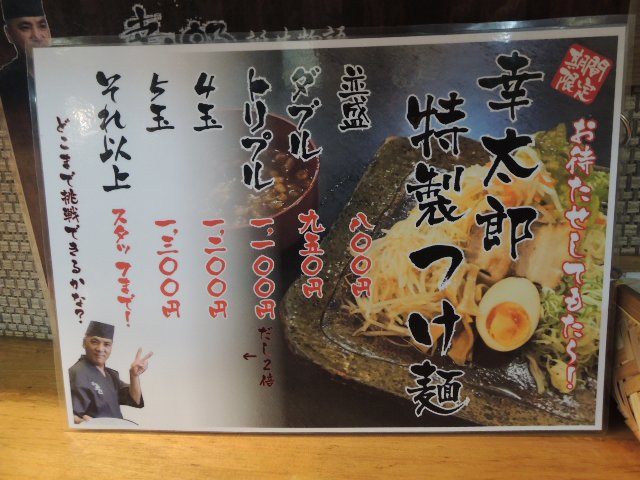 期間
限定
お待たせしてきたら!
幸太郎
特製つけ麺
並盛
八〇〇円
ダブル
九五〇円
トリプル
一、一〇〇円
だし2倍
←
4玉
一、二〇〇円
5玉
一、三〇〇円
それ以上
スタッフまで!
どこまで挑戦できるかな?